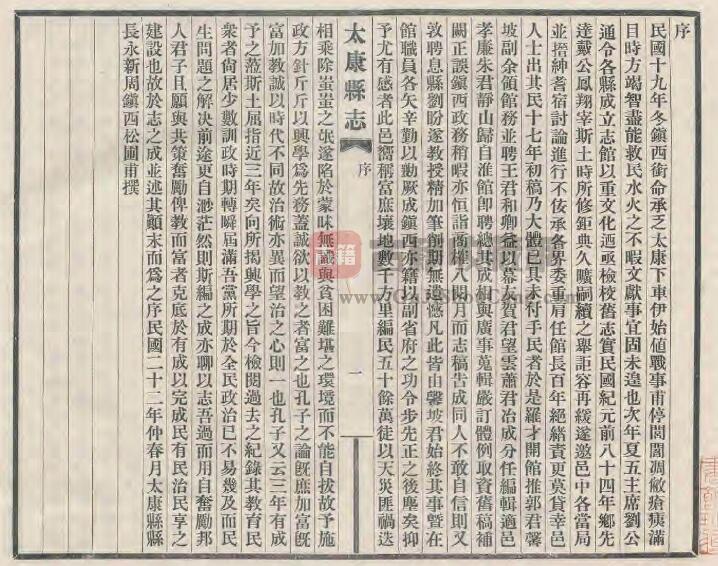 序
民國十九年冬鎮西銜命承乏太康下車伊始値戰事甫停閭閻凋敝瘡痍滿
目時方竭智盡能救民水火之不暇文獻事宜固未遑也次年夏五主席劉公
通令各縣成立志館以重文化迺亟檢校舊志實民國紀元前八十四年鄕先
達戴公鳳翔宰斯土時所修鉅典久曠嗣續之舉詎容再緩遂邀邑中各當局
並搢紳耆宿討論進行不佞承各界委重肩任館長百年絕緒責更莫貸幸邑
人士出其民十七年初稿乃大體已具未付手民者於是羅才開館推郭君馨
坡副余領館務並聘王君和卿益以幕友賀君望雲蕭君冶成分任編輯適邑
孝廉朱君靜山歸自淮館卽聘總其成相與廣事蒐輯嚴訂體例取資舊稿補
闕正誤鎮西政務稍暇亦恒詣商權八閱月而志稿吿成同人不敢自信則又
敦聘息縣劉盼遂敎授精加筆削期無遺憾凡此皆由馨坡君始終其事曁在
館職員各矢辛勤以勷厥成鎮西亦藉以副省府之功令步先正之後塵矣抑
予尤有感者此邑嚮稱富庶壤地數千方里編民五十餘萬徒以天災匪禍迭
太康縣志
序
一
相乘除蚩蚩之氓遂陷於蒙昧無識與貧困難堪之環境而不能自拔故予施
政方針斤斤以興學爲先務蓋誠欲以敎之者富之也孔子之論旣庶加富旣
富加敎誠以時代不同故治術亦異而望治之心則一也孔子又云三年有成
予之蒞斯土屈指近三年矣向所揭興學之旨今檢閱過去之紀錄其敎育民
衆者尙居少數訓政時期轉瞬屆滿吾黨所期於全民政治已不易幾及而民
生問題之解決前途更自渺茫然則斯編之成亦聊以志吾過而用自奮勵邦
人君子且願與共策奮勵俾敎而富者克底於有成以完成民有民治民享之
建設也故於志之成並述其顚末而爲之序民國二十二年仲春月太康縣縣
長永新周鎮西松圃甫撰